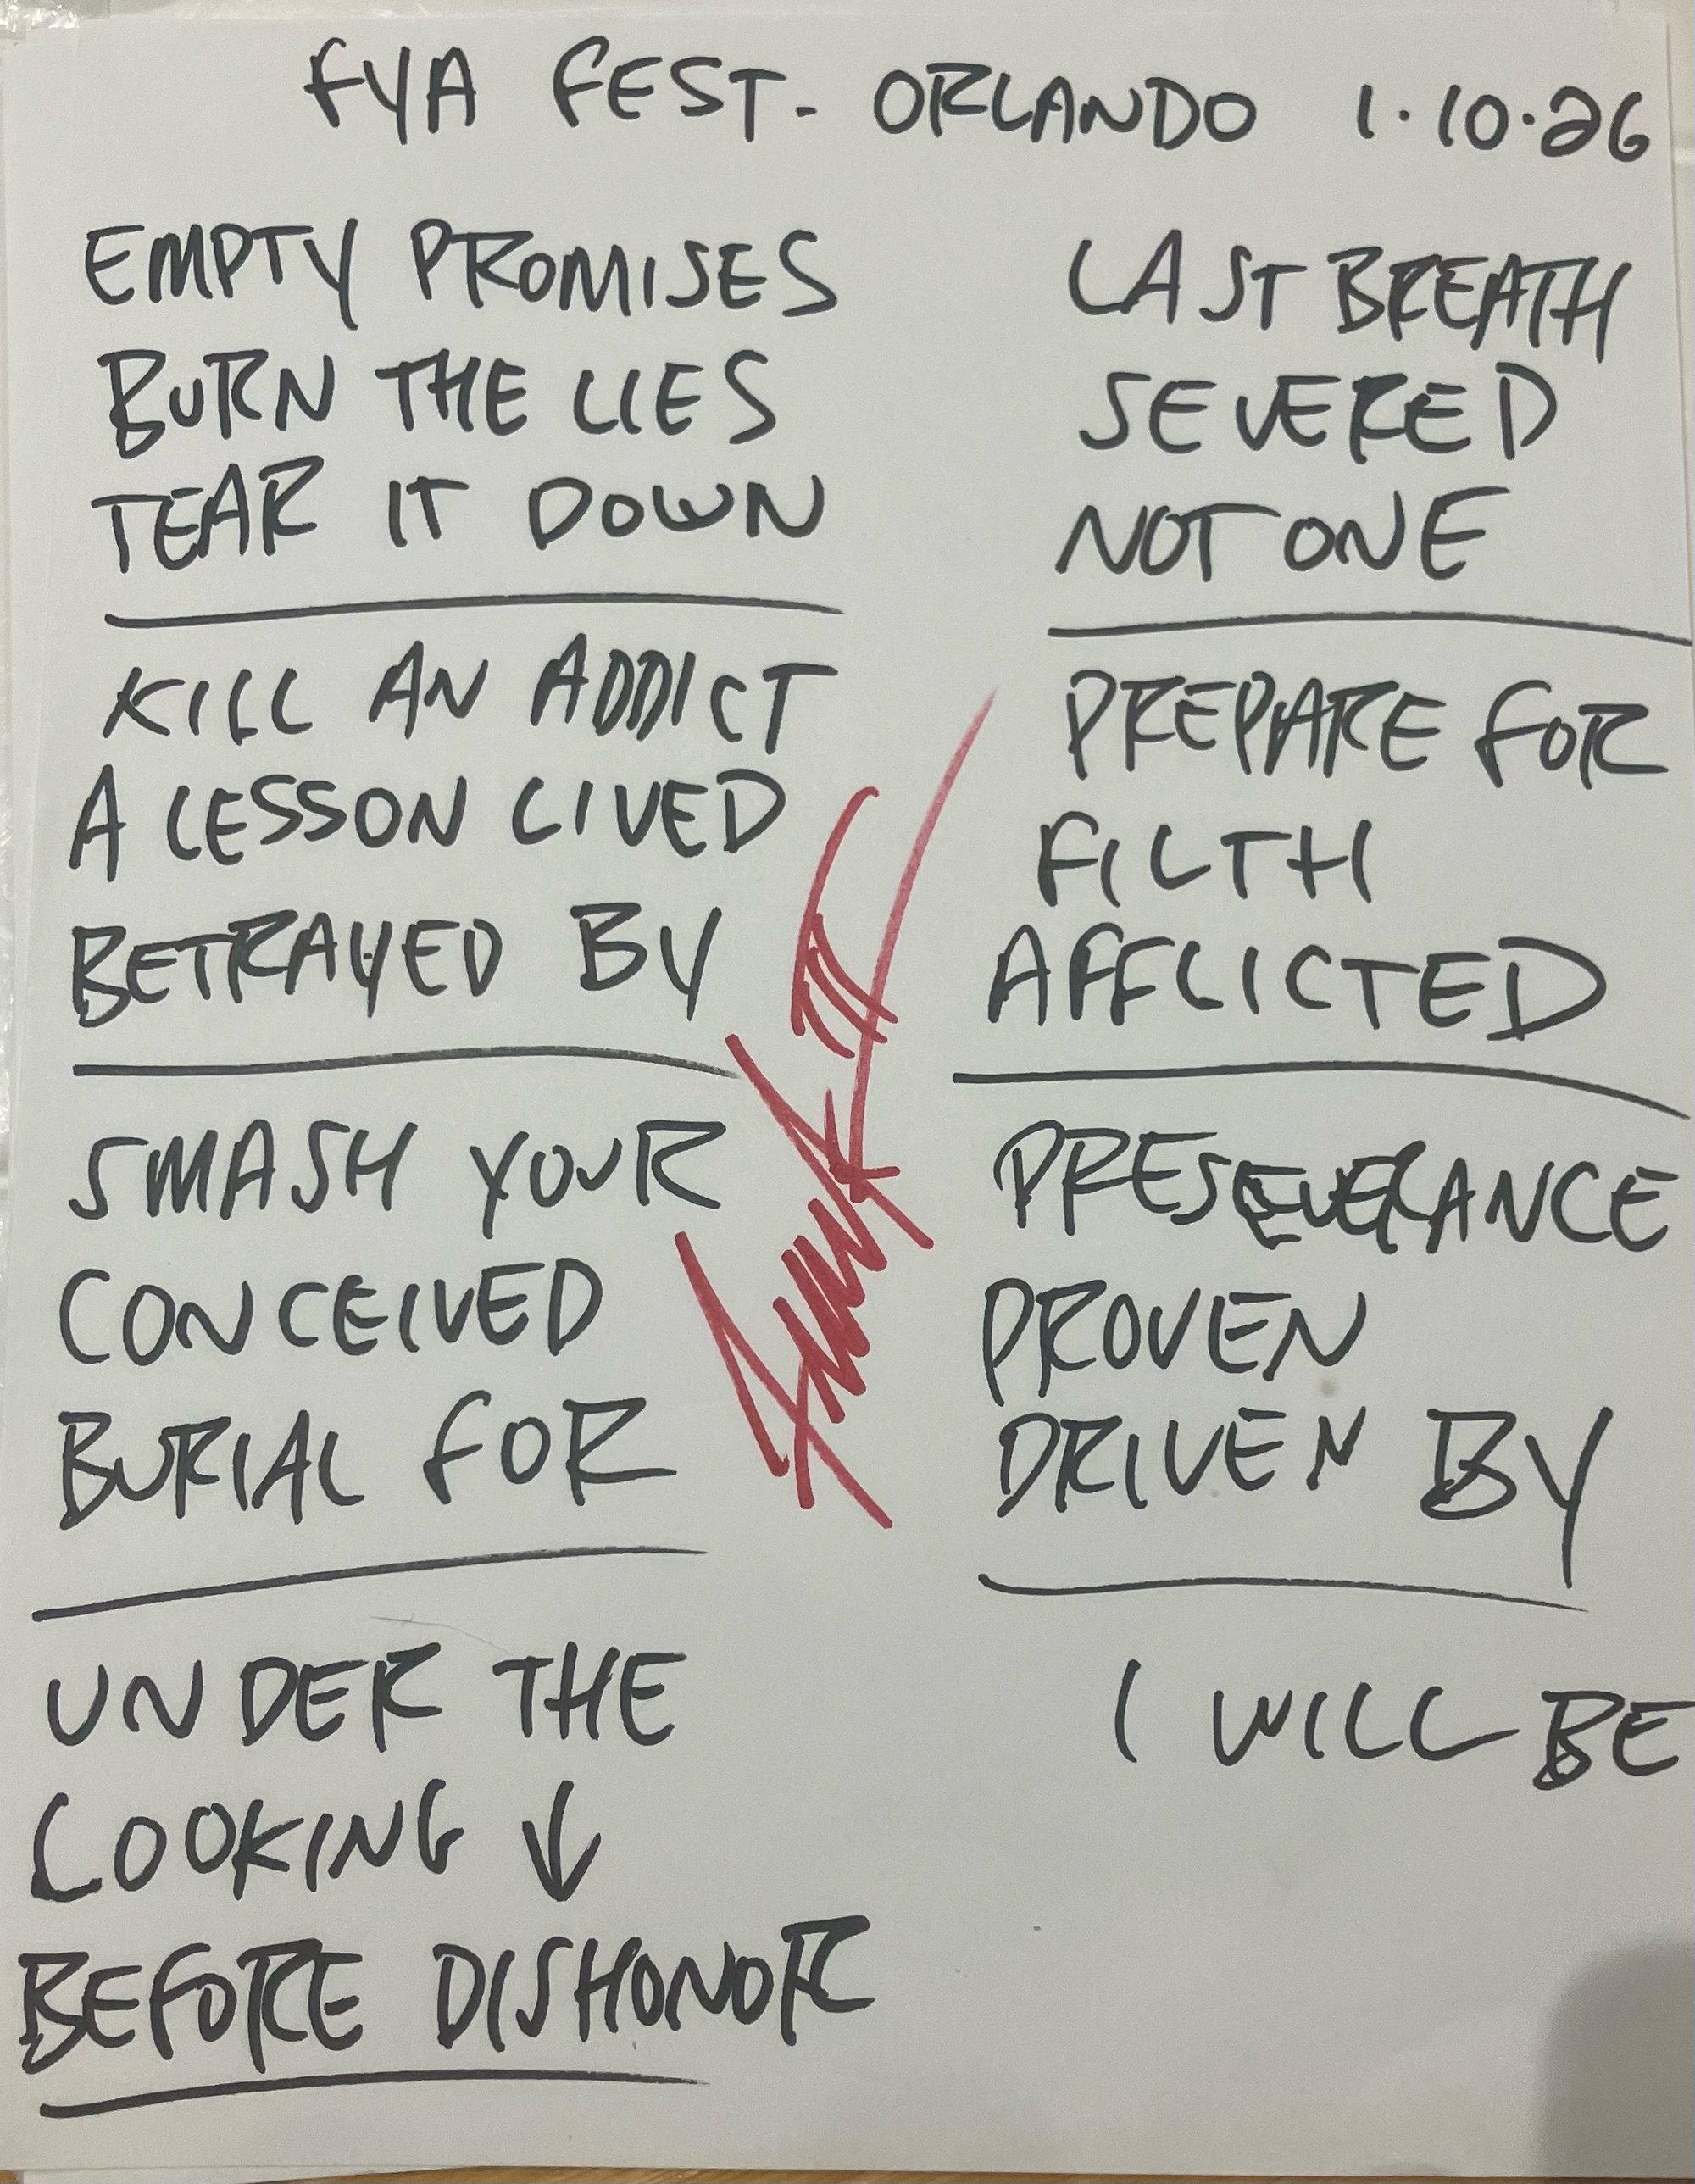 FYA FEST. ORLANDO 1.10.26
EMPTY PROMISES
BURN THE LIES
TEAR IT DOWN
KILL AN ADDICT
A LESSON LIVED
BETRAYED BY
SMASH YOUR
CONCEIVED
BURIAL FOR
UNDER THE
LOOKING ↓
BEFORE DISHONOR
LAST BREATH
SEVERED
NOT ONE
PREPARE FOR
FILTH
AFFLICTED
PRESEVERANCE
PROVEN
DRIVEN BY
I WILL BE